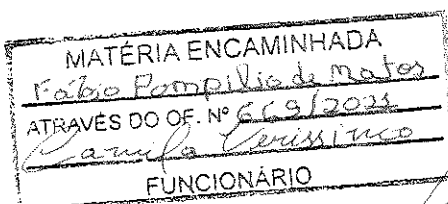 MATÉRIA ENCAMINHADA
Fábio Pompilio de Matos
ATRAVÉS DO OF. Nº 669/2021
Camila Verissimo
FUNCIONÁRIO